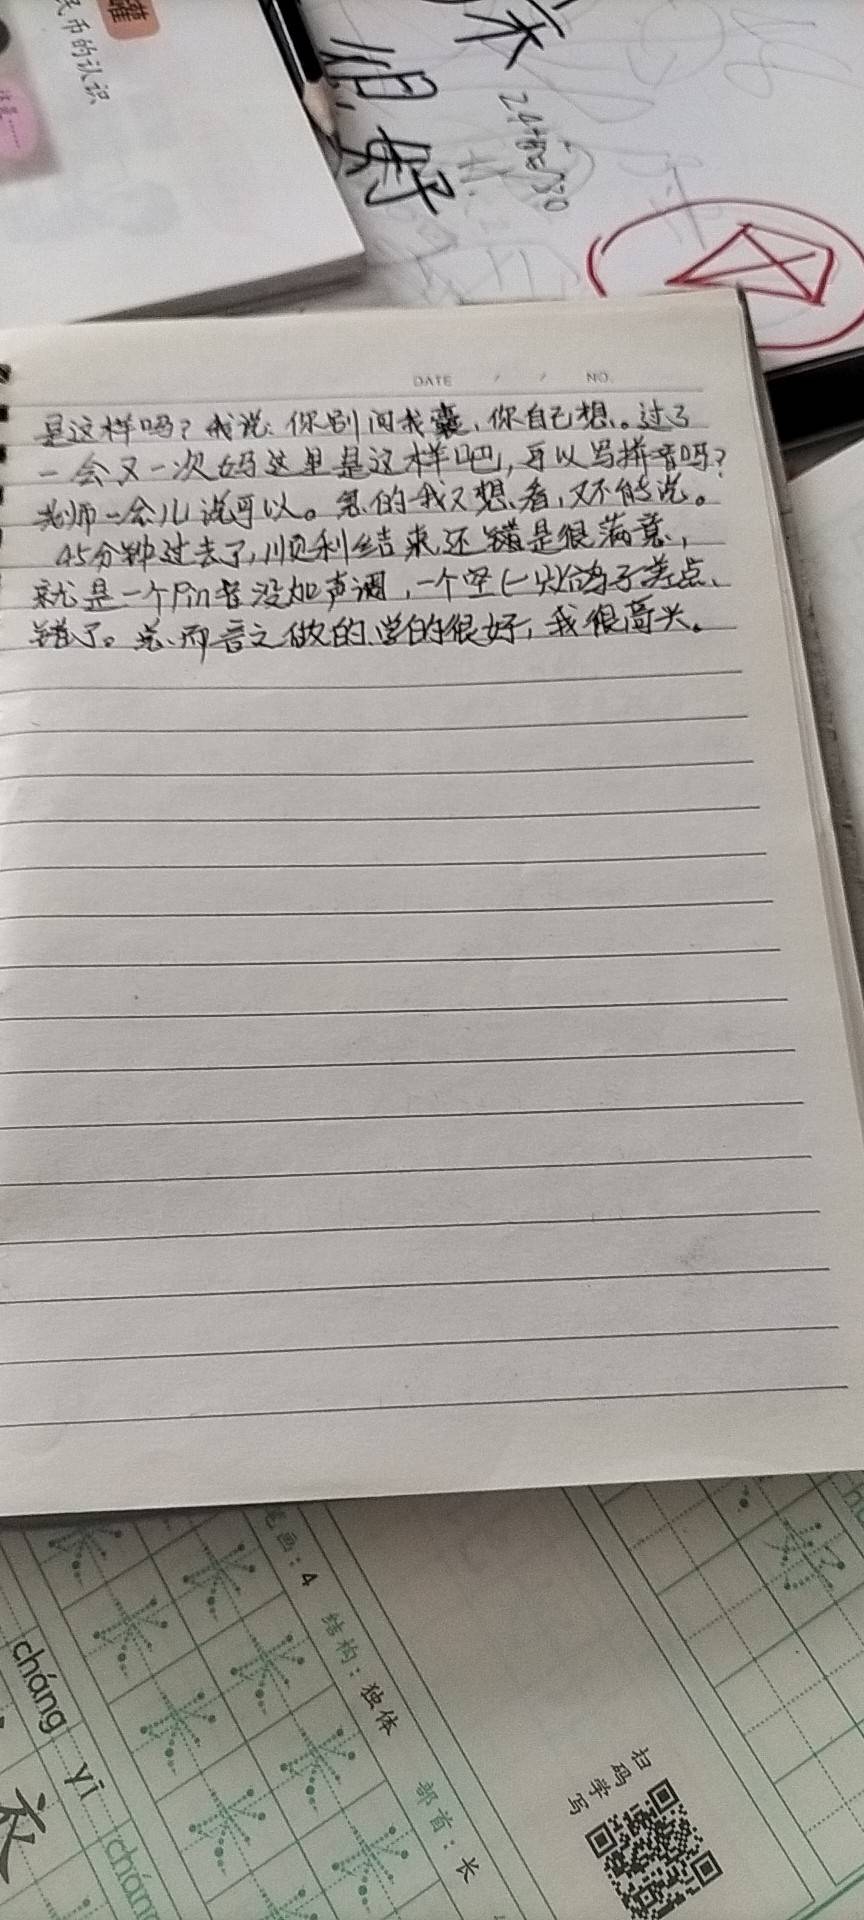 民币的认识
24+
DATE / / NO.
是这样吗？我说：你别问我，你自己想。过了
一会又一次妈这里是这样吧，可以写拼音吗？
老师一会儿说可以。急的我又想看，又不能说。
45分钟过去了，顺利结束，还是很满意，
就是一个Pin音没加声调，一个空(一只)鸽子差点
错了。总而言之做的、学的很好，我很高兴。
笔画：4 结构：独体 部首：长
cháng yī
衣
扫码学写